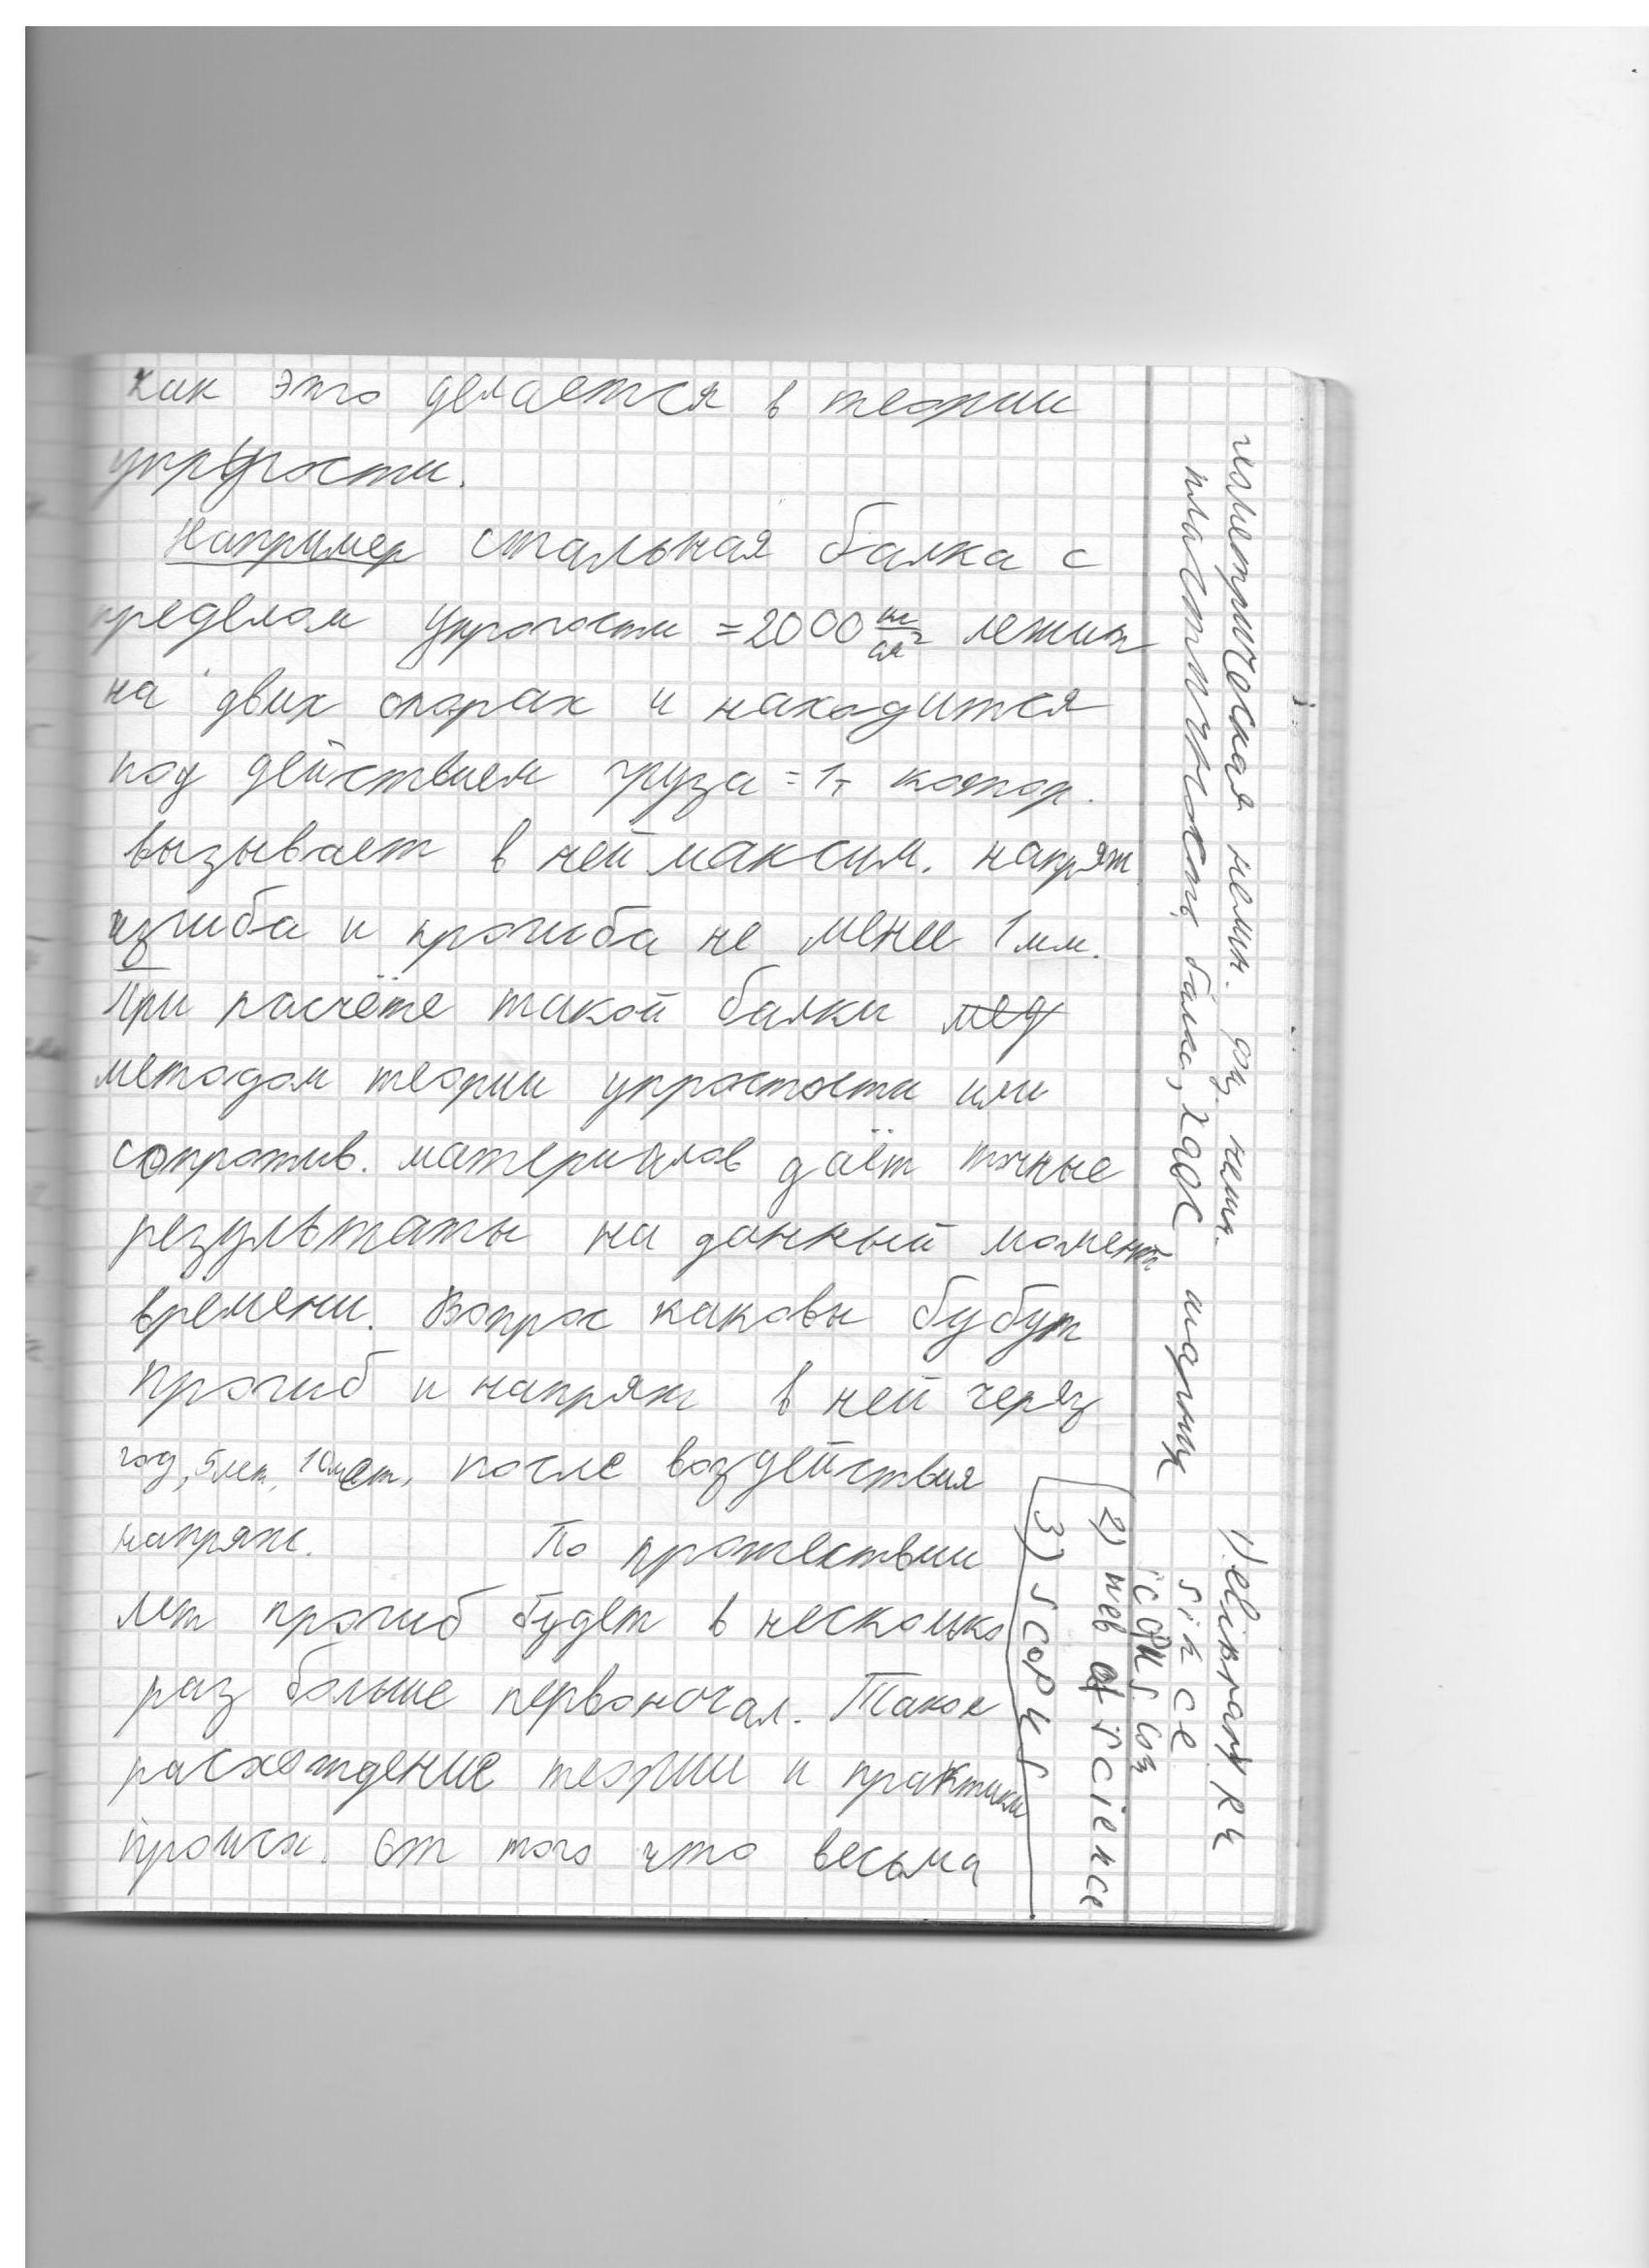 как это делается в теории
упругости.
Например стальная балка с
пределом упругости =2000 кг/см² лежит
на двух опорах и находится
под действием груза =1т котор.
вызывает в ней максим. напряж
изгиба и прогиба не менее 1мм.
При расчёте такой балки мед
методом теории упростости или
сопротив. материалов даёт точные
результаты на данный момент
времени. Вопрос каковы бубут
прогиб и напряж в ней черяз
год, 5лет, 10лет, после воздействия
напряж. По прошествии
лет прогиб будет в несколько
раз больше первоначал. Такое
расхождение теории и практики
происх. от того что весьма
геометрическая нелин. физ. нелин.
пластичность балка, хаос шарнир
1) elibrary RЦ
2) web of science
3) scopus